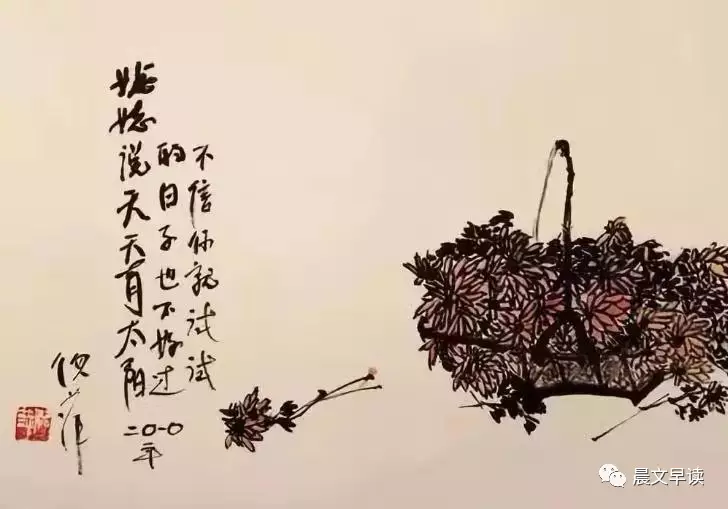 姥姥说天天有太阳
的日子也不好过
不信你就试试
二〇一〇年
倪萍
晨文早读